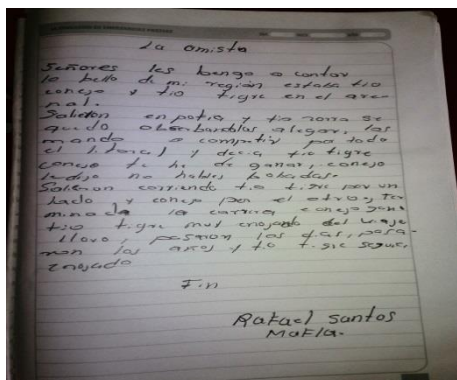 La amista
Señores les bengo a contar
lo bello de mi región estaba tio
conejo y tio tigre en el are-
nal.
Salieron en potia y tio zorra se
quedo obserbandolas alegar, los
mando a competir por todo
el litoral y decia tio tigre
conejo te he de ganar, conejo
le dijo no hables bobadas.
Salieron corriendo tio tigre por un
lado y conejo por el otro y ter
minada la carrera conejo gano
tio tigre muy enojado del viaje
lloro, pasaron los dias, pasa-
ron los años y tio tigre seguia
enojado
Fin
Rafael Santos
Mafla.